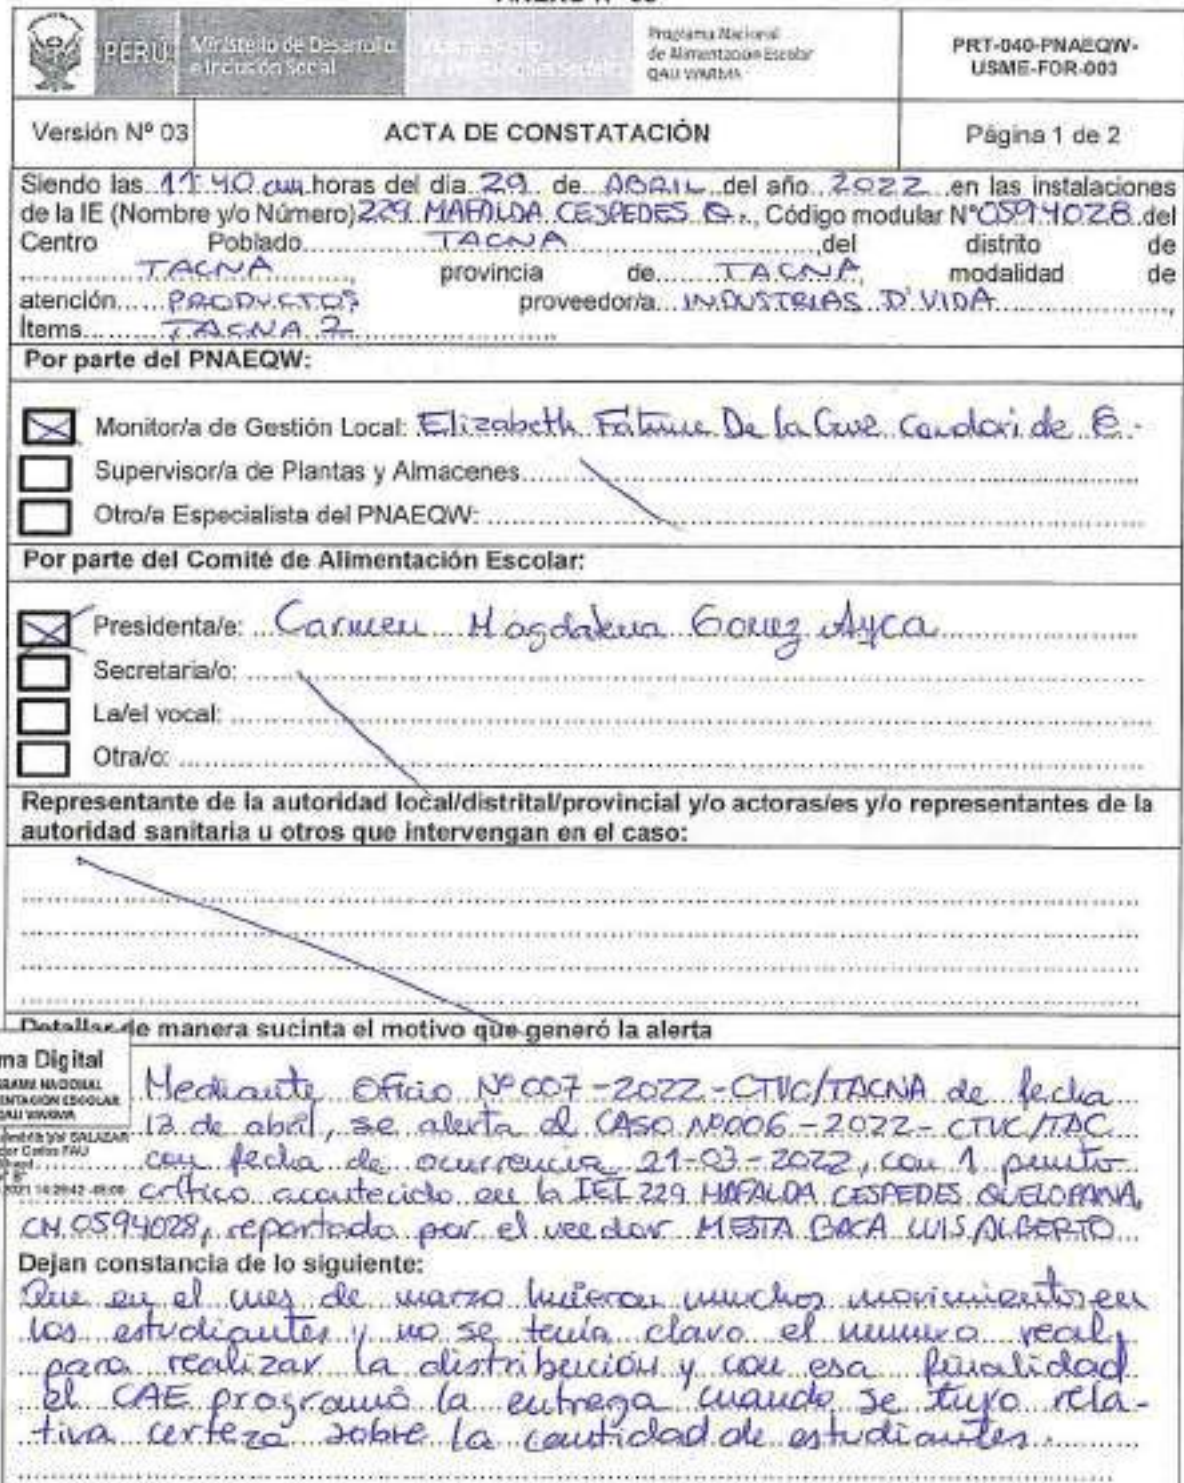 PERÚ
Ministerio de Desarrollo
e Inclusión Social
Programa Nacional
de Alimentación Escolar
QALI WARMA
PRT-040-PNAEQW-
USME-FOR-003
Versión Nº 03
ACTA DE CONSTATACIÓN
Página 1 de 2
Siendo las 11:40 am horas del dia 29 de ABRIL del año 2022 en las instalaciones
de la IE (Nombre y/o Número) 229 MAFALDA CESPEDES Q., Código modular Nº 0594028 del
Centro Poblado TACNA, del distrito de
TACNA, provincia de TACNA, modalidad de
atención PRODUCTOS proveedor/a INDUSTRIAS D'VIDA,
Ítems TACNA 2
Por parte del PNAEQW:
Monitor/a de Gestión Local: Elizabeth De la Cruz Condori de
Supervisor/a de Plantas y Almacenes
Otro/a Especialista del PNAEQW:
Por parte del Comité de Alimentación Escolar:
Presidenta/e: Carmen Magdalena Gomez Ayca
Secretaria/o:
La/el vocal:
Otra/o:
Representante de la autoridad local/distrital/provincial y/o actoras/es y/o representantes de la
autoridad sanitaria u otros que intervengan en el caso:
Detallar de manera sucinta el motivo que generó la alerta
ma Digital
QALI WARMA
SALAZAR
Mediante Oficio Nº 007-2022-CTVC/TACNA de fecha
13 de abril, se alerta el CASO Nº006-2022-CTVC/TAC
con fecha de ocurrencia 21-03-2022, con 1 punto
crítico acontecido en la IEI 229 MAFALDA CESPEDES QUELOPANA,
CM 0594028, reportado por el veedor MESTA BACA LUIS ALBERTO
Dejan constancia de lo siguiente:
Que en el mes de marzo hubieron muchos movimientos en
los estudiantes y no se tenía clara el numero real,
para realizar la distribución y con esa finalidad
el CAE programó la entrega cuando se tuvo rela-
tiva certeza sobre la cantidad de estudiantes.